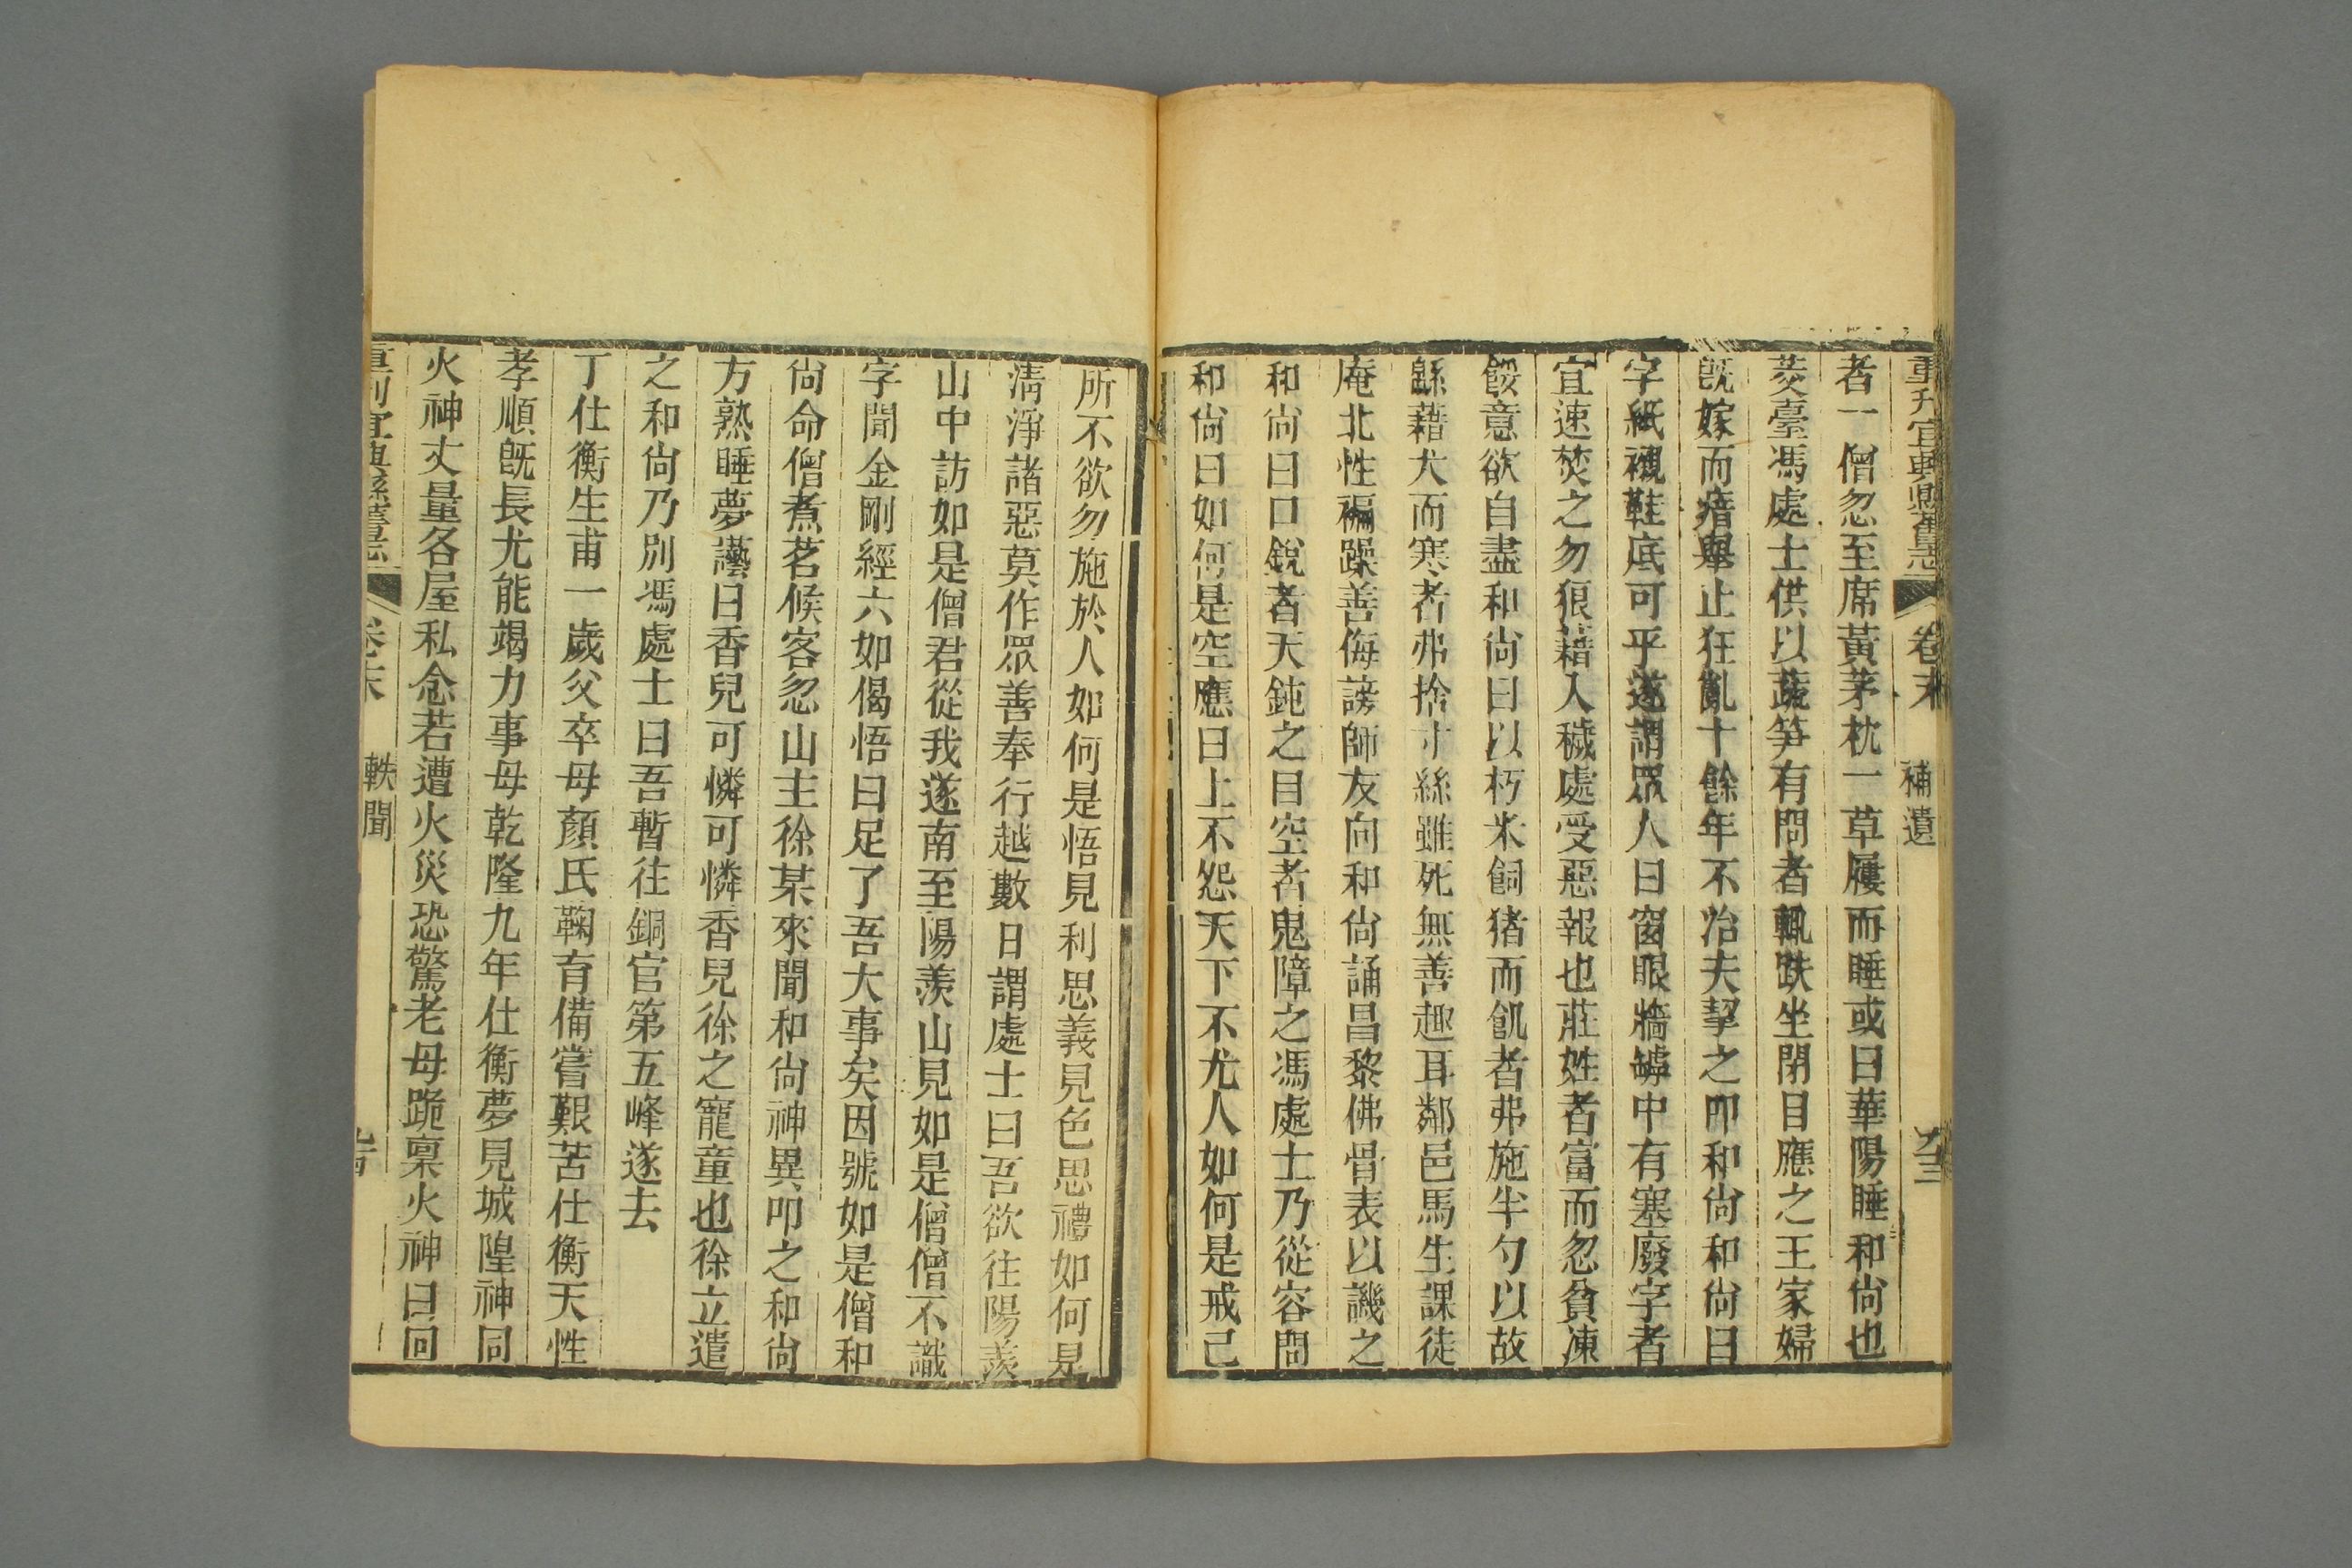 重刋宜興縣舊志 卷末 補遺
者一僧忽至席黃茅枕一草屨而睡或曰華陽睡和尙也
茭臺馮處士供以蔬笋有問者輒趺坐閉目應之王家婦
旣嫁而瘖舉止狂亂十餘年不治夫挈之叩和尙和尙曰
字紙襯鞋底可乎遂謂眾人曰窗眼牆罅中有塞廢字者
宜速焚之勿狼藉入穢處受惡報也莊姓者富而忽貧凍
餒意欲自盡和尙曰以朽米飼猪而飢者弗施半勺以故
緜藉犬而寒者弗捨寸絲雖死無善趣耳鄰邑馬生課徒
庵北性褊躁善侮謗師友向和尙誦昌黎佛骨表以譏之
和尙曰口銳者天鈍之目空者鬼障之馮處士乃從容問
和尙曰如何是空應曰上不怨天下不尤人如何是戒己
所不欲勿施於人如何是悟見利思義見色思禮如何是
淸淨諸惡莫作眾善奉行越數日謂處士曰吾欲往陽羨
山中訪如是僧君從我遂南至陽羨山見如是僧僧不識
字聞金剛經六如偈悟曰足了吾大事矣因號如是僧和
尙命僧煮茗候客忽山主徐某來聞和尙神異叩之和尙
方熟睡夢讛曰香兒可憐可憐香兒徐之寵童也徐立遣
之和尙乃別馮處士曰吾暫往銅官第五峰遂去
丁仕衡生甫一歲父卒母顏氏鞠育備嘗艱苦仕衡天性
孝順旣長尤能竭力事母乾隆九年仕衡夢見城隍神同
火神丈量各屋私念若遭火災恐驚老母跪稟火神曰回
重刋宜興縣舊志 卷末 軼聞